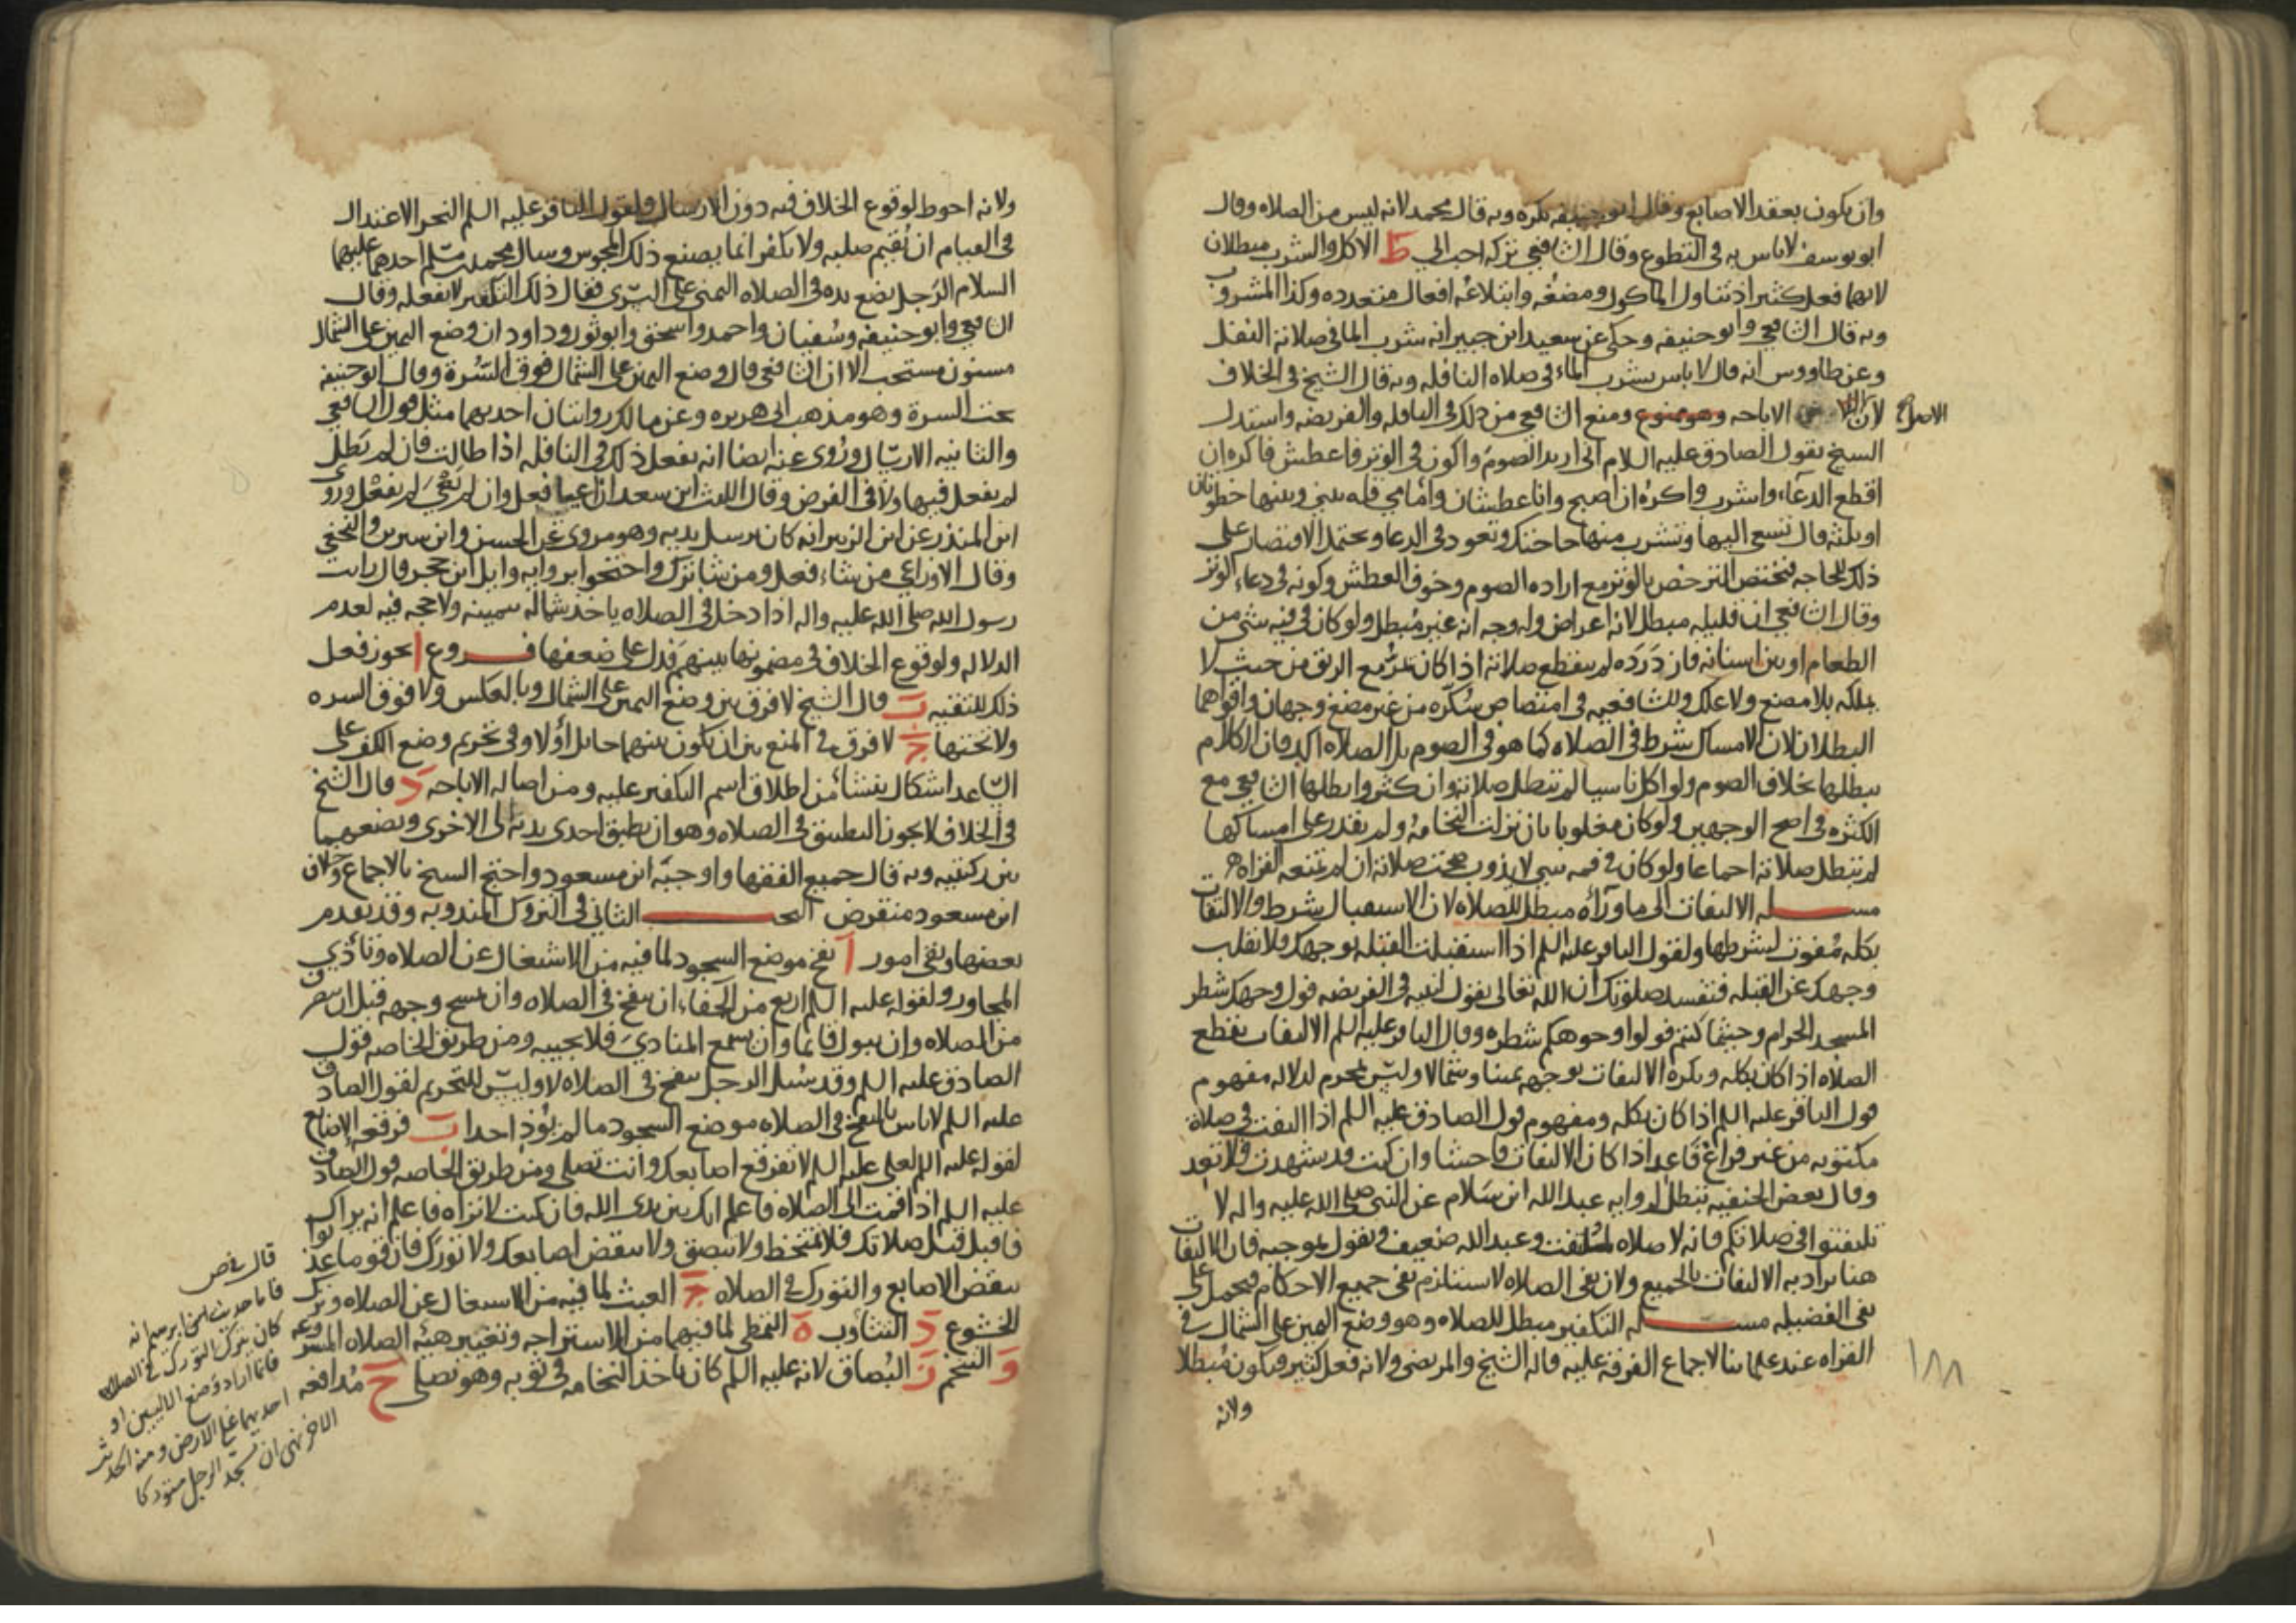 وان يكون بعقد الاصابع وقال ابو حنيفه يكره وبه قال محمد لانه ليس من الصلاه وقال
ابو يوسف لا باس به في التطوع وقال الشافعي تركه احب الي ط الاكل والشرب مبطلان
لانهما فعل كثير اذ تناول الماكول ومضغه وابتلاعه افعال متعدده وكذا المشروب
وبه قال الشافعي وابو حنيفه وحكى عن سعيد ابن جبير انه شرب الما في صلاته النفل
وعن طاووس انه قال لا باس بشرب الماء في صلاه النافله وبه قال الشيخ في الخلاف
لان الاصل الاباحه وهو ممنوع ومنع الشافعي من ذلك في النافله والفريضه واستدل
الاصل
الشيخ بقول الصادق عليه السلام اني اريد الصوم واكون في الوتر فاعطش فاكره ان
اقطع الدعاء واشرب واكره ان اصبح وانا عطشان وامامي قله بيني وبينها خطوتان
او ثلثه قال تسعى اليها وتشرب منها حاجتك وتعود في الدعا ويحتمل الاقتصار على
ذلك للحاجه فيختص الترخص بالوتر مع اراده الصوم وخوف العطش وكونه في دعاء الوتر
وقال الشافعي ان قليله مبطل لانه اعراض وله وجه انه غير مبطل ولو كان في فيه شي من
الطعام او بين اسنانه فازدرده لم يقطع صلاته اذا كان يمر مع الريق من حيث لا
يملكه بلا مضغ ولا علك وللشافعيه في امتصاص سكره من غير مضغ وجهان واقواهما
البطلان لان الامساك شرط في الصلاه كما هو في الصوم بل الصلاه اكد فان الكلام
يبطلها بخلاف الصوم ولو اكل ناسيا لم تبطل صلاته وان كثر وابطلها الشافعي مع
الكثره في اصح الوجهين ولو كان مغلوبا بان نزلت النخامه ولم يقدر على امساكها
لم تبطل صلاته اجماعا ولو كان في فمه شي لا يذوب صحت صلاته ان لم تمنعه القراه
مسـله الالتفات الى ما وراه مبطل للصلاه لان الاستقبال شرط والالتفات
بكله مفوت لشرطها ولقول الباقر عليه السلم اذا استقبلت القبله بوجهك فلا تقلب
وجهك عن القبله فتفسد صلوتك ان الله تعالى يقول لنبيه في الفريضه فول وجهك شطر
المسجد الحرام وحيثما كنتم فولوا وجوهكم شطره وقال الباقر عليه السلم الالتفات يقطع
الصلاه اذا كان بكله ويكره الالتفات بوجهه يمينا وشمالا وليس بمحرم لدلاله مفهوم
قول الباقر عليه السلم اذا كان بكله ومفهوم قول الصادق عليه السلم اذا التفت في صلاة
مكتوبه من غير فراغ فاعد اذا كان الالتفات فاحشا وان كنت قد تشهدت فلا تعد
وقال بعض الحنفيه تبطل لروايه عبد الله ابن سلام عن النبي صلى الله عليه واله لا
تلتفتوا في صلاتكم فانه لا صلاه لملتفت وعبد الله ضعيف ونقول بموجبه فان الالتفات
هنا يراد به الالتفات بالجميع ولان نفي الصلاه لا يستلزم نفي جميع الاحكام فيحمل على
نفي الفضيله مسـله التكفير مبطل للصلاه وهو وضع اليمين على الشمال في
القراه عند علمائنا لاجماع الفرقه عليه قاله الشيخ والمرتضى ولانه فعل كثير فيكون مبطلا
١٨٨
ولانه
ولانه احوط لوقوع الخلاف فيه دون الارسال ولقول الباقر عليه السلم النحر الاعتدال
في القيام ان تقيم صلبه ولا تكفر انما يصنع ذلك المجوس وسال محمد بن مسلم احدهما عليهما
السلام الرجل يضع يده في الصلاه اليمنى على اليسرى فقال ذلك التكفير لا تفعله وقال
الشافعي وابو حنيفه وسفيان واحمد واسحق وابو ثور وداود ان وضع اليمين على الشمال
مسنون مستحب الا ان الشافعي قال وضع اليمين على الشمال فوق السرة وقال ابو حنيفه
تحت السرة وهو مذهب ابي هريره وعن مالك روايتان احديهما مثل قول الشافعي
والثانيه الارسال وروى عنه ايضا انه يفعل ذلك في النافله اذا طالت فان لم تطل
لم يفعل فيها ولا في الفرض وقال الليث ابن سعد ان اعيا فعل وان لم يعي لم يفعل وروى
ابن المنذر عن ابن الزبير انه كان يرسل يديه وهو مروى عن الحسن وابن سيرين والنخعي
وقال الاوزاعي من شاء فعل ومن شا ترك واحتجوا بروايه وايل ابن حجر قال رايت
رسول الله صلى الله عليه واله اذا دخل في الصلاه ياخذ شماله بيمينه ولا حجه فيه لعدم
الدلاله ولوقوع الخلاف في مضمونها بينهم فدل على ضعفها فـروع ا يجوز فعل
ذلك للتقيه ب قال الشيخ لا فرق بين وضع اليمين على الشمال وبالعكس ولا فوق السره
ولا تحتها ج لا فرق في المنع بين ان يكون بينهما حائل او لا وفي تحريم وضع الكف على
الساعد اشكال ينشا من اطلاق اسم التكفير عليه ومن اصاله الاباحه د قال الشيخ
في الخلاف لا يجوز التطبيق في الصلاه وهو ان يطبق احدى يديه الى الاخرى ويضعهما
بين ركبتيه وبه قال جميع الفقها واوجبه ابن مسعود واحتج الشيخ بالاجماع وخلاف
ابن مسعود منقرض البحـث الثاني في التروك المندوبه وقد تقدم
بعضها وبقي امور ا نفخ موضع السجود لما فيه من الاشتغال عن الصلاه وتاذي
المجاور ولقوله عليه السلم اربع من الجفاء ان ينفخ في الصلاه وان يمسح وجهه قبل ان ينصرف
من الصلاه وان يبول قائما وان يسمع المنادي فلا يجيبه ومن طريق الخاصه قول
الصادق عليه السلم وقد سئل الرجل ينفخ في الصلاه لا وليس للتحريم لقول الصادق
عليه السلم لا باس بالنفخ في الصلاه موضع السجود ما لم يؤذ احدا ب فرقعه الاصابع
لقوله عليه السلم لعلي عليه السلم لا تفرقع اصابعك وانت تصلي ومن طريق الخاصه قول الصادق
عليه السلم اذا قمت الى الصلاه فاعلم انك بين يدى الله فان كنت لا تراه فاعلم انه يراك
فاقبل قبل صلاتك فلا تمتخط ولا تبصق ولا تنقض اصابعك ولا تورك فان قوما عذبوا
بنقض الاصابع والتورك في الصلاه ج العبث لما فيه من الاشتغال عن الصلاه وترك
الخشوع د التثاوب ه التمطي لما فيهما من الاستراحه وتغيير هيئه الصلاه المشروعه
و التنخم ز البصاق لانه عليه السلم كان ياخذ النخامه في ثوبه وهو يصلي ح مدافعه
قال
فاما حديث ابرهيم انه
كان يكره التورك في الصلاه
فانما اراد وضع الاليتين او
احديهما على الارض ومنه الحديث
الاخر نهى ان يسجد الرجل متوركا